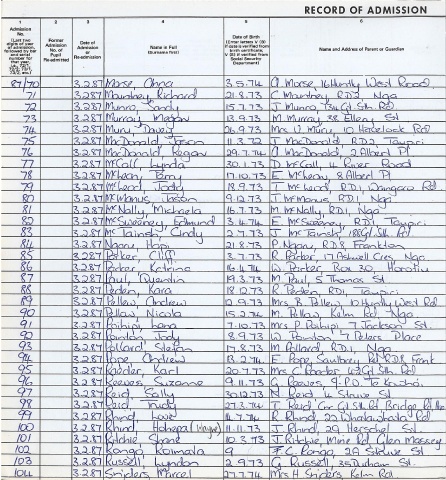 RECORD OF ADMISSION
1 2 3 4 5 6
Admission No. Former Admission No. of Pupil Re-admitted Date of Admission or Re-admission Name in Full (Surname first) Date of Birth Name and Address of Parent or Guardian
87/70 3.2.87 Morse Anna 3.5.74 Morse 16 Huntly West Road
71 3.2.87 Mounthey Richard 21.8.73 C Mounthey R.D.1 Nga
72 3.2.87 Munro Sandy 15.7.73 J Munro Gt Sth Rd
73 3.2.87 Murray Megan 13.9.73 M. Murray 38 Ellery St
74 3.2.87 Mury David 26.9.73 Mrs V. Mury 10 Havelock Rd
75 3.2.87 MacDonald Jason 11.3.72 J MacDonald R.D.2 Taupiri
76 3.2.87 MacDonald Regan 29.7.74 MacDonald 2 Albert Pl
77 3.2.87 McCall Lynda 30.1.73 D McCall River Road
78 3.2.87 McKean Terry 17.10.73 E McKean 8 Albert Pl
79 3.2.87 McLeod Jody 18.9.73 McLeod R.D.1
80 3.2.87 McManus Jason 9.12.73 J McManus R.D.1 Nga
81 3.2.87 McNally Michaela 16.7.73 M McNally R.D.1 Nga
82 3.2.87 McSweeney Edmund 3.4.74 E McSweeney R.D.1 Taupiri
83 3.2.87 McTainsh Cindy 2.7.73 J McTainsh Gt Sth Rd
84 3.2.87 Ngaru Hapi 21.8.73 P. Ngaru R.D.8 Frankton
85 3.2.87 Parker Cliff 3.7.73 R Parker 17 Ashwell Cres Nga
86 3.2.87 Parker Katrina 16.4.74 W. Parker Box 30 Horotiu
87 3.2.87 Paul Quentin 19.3.73 M Paul 5 Thomas St
88 3.2.87 Peden Kara 18.12.73 R Peden R.D.1 Taupiri
89 3.2.87 Pellow Andrew 12.9.73 Mrs B Pellow 10 Huntly West Rd
90 3.2.87 Pellow Nicola 15.2.74 M. Pellow Kelm Rd Nga
91 3.2.87 Paihipi Lena 7.10.73 Mrs P Paihipi 7 Jackson St
92 3.2.87 Pointon Jody 8.9.73 W Pointon 7 Peters Place
93 3.2.87 Pollard Stefan 17.8.73 M Pollard R.D.1 Nga
94 3.2.87 Pope Andrew 13.2.74 E Pope R.D.8 Frank
95 3.2.87 Raeder Karl 20.7.73 Mrs C Gt Sth Rd
96 3.2.87 Reeves Suzanne 9.11.73 G Reeves P.O. Te Kowhai
97 3.2.87 Reid Sally 30.12.73 N Reid 4 Struve St
98 3.2.87 Reid Trudy 27.3.74 T Reid Cnr Gt Sth Rd Bridge Rd
99 3.2.87 Rhind 14.7.74 R Rhind Rd
100 3.2.87 Rhind Hohepa (Wayne) 11.11.73 J Rhind 29 Herschel St
101 3.2.87 Ritchie Shane 10.3.73 J Ritchie Mine Rd Glen Massey
102 3.2.87 Rongo 9 F C Rongo 2A Struve St
103 3.2.87 Russell Lyndon 2.9.73 G Russell 35 Durham St
104 3.2.87 Snijders Marcel 27.7.74 Mrs H Snijders Kelm Rd